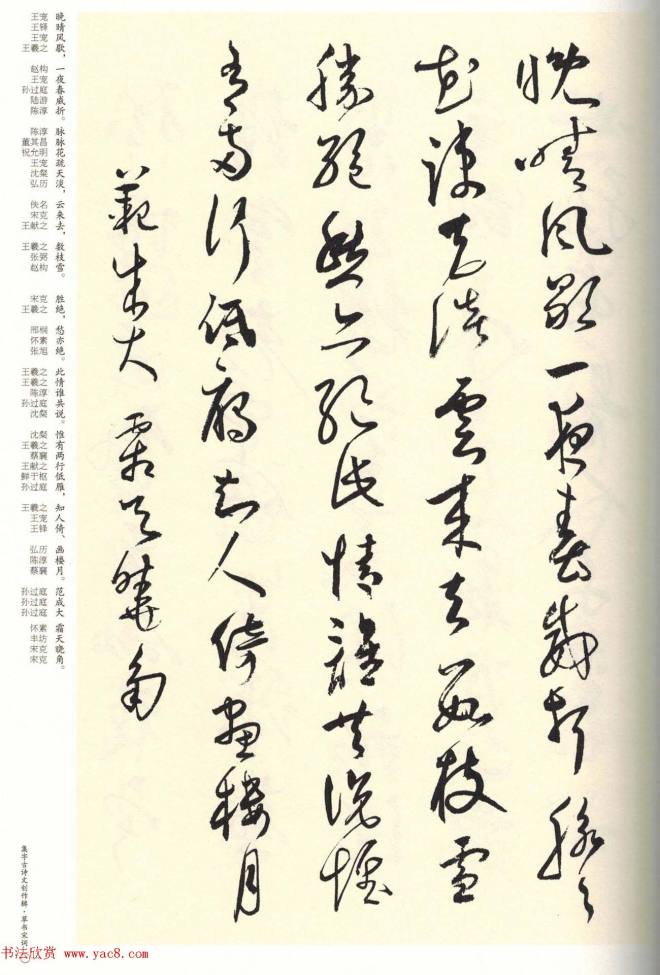 晚晴風歇一夜春威折脈脈
花疎天淡雲來去數枝雪
勝絕愁亦絕此情誰共說惟
有兩行低雁知人倚畫樓月
範成大 霜天曉角
王宠 晚
王铎 晴
王宠 风
王羲之 歇，
赵构 一
王宠 夜
孙过庭 春
陆游 威
陈淳 折。
陈淳 脉
董其昌 脉
祝允明 花
王宠 疏
沈粲 天
弘历 淡，
佚名 云
宋克 来
王献之 去，
王羲之 数
张弼 枝
赵构 雪。
宋克 胜
王羲之 绝，
邢侗 愁
怀素 亦
张旭 绝。
王羲之 此
王羲之 情
陈淳 谁
孙过庭 共
沈粲 说。
沈粲 惟
王羲之 有
蔡襄 两
王献之 行
鲜于枢 低
孙过庭 雁，
王羲之 知
王宠 人
王铎 倚、
弘历 画
陈淳 楼
蔡襄 月。
孙过庭 范
孙过庭 成
孙过庭 大
怀素 霜
丰坊 天
宋克 晓
宋克 角。
集字古诗文创作辑·草书宋词
书法欣赏 www.yac8.com